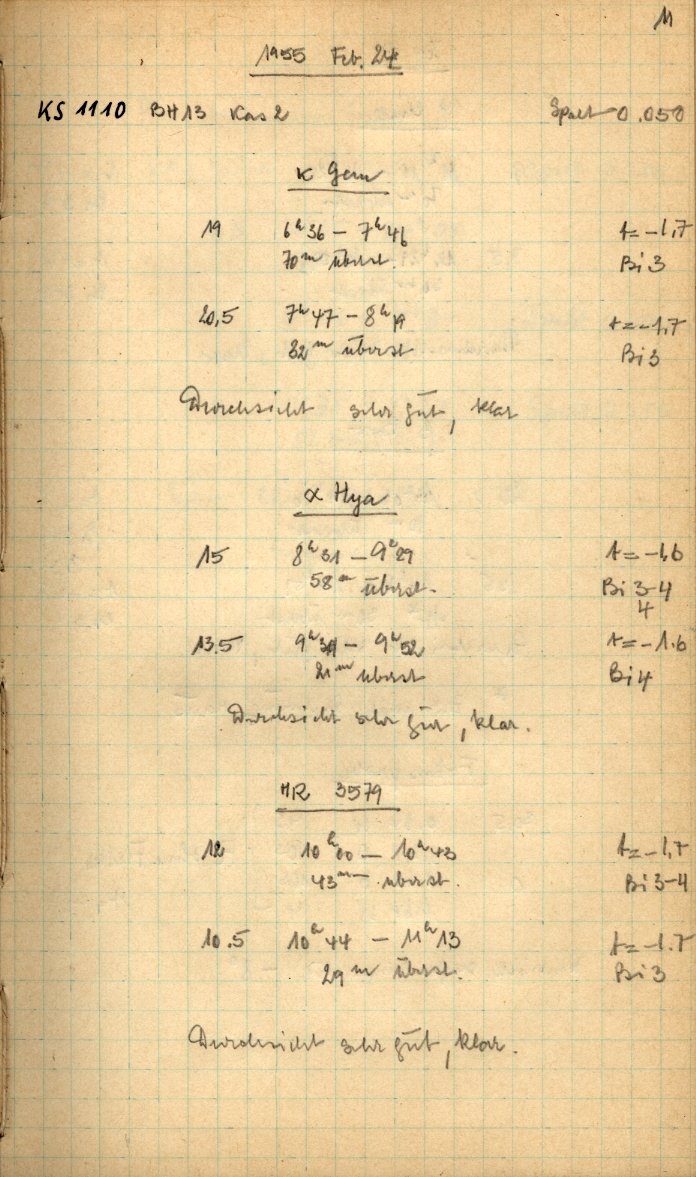 11
1955 Feb. 24
KS 1110 BH13 Kas 2 Spalt 0.050
κ Gem
19 6ʰ36 – 7ʰ46 t = –1,7
70ᵐ überst. Bi 3
20,5 7ʰ47 – 8ʰ19 t = –1,7
32ᵐ überst Bi 3
Durchsicht sehr gut, klar
α Hya
15 8ʰ31 – 9ʰ29 t = –1,6
58ᵐ überst. Bi 3-4
4
13.5 9ʰ31 – 9ʰ52 t = –1.6
21ᵐ überst Bi 4
Durchsicht sehr gut, klar.
HR 3579
12 10ʰ00 – 10ʰ43 t = –1,7
43ᵐ überst. Bi 3-4
10.5 10ʰ44 – 11ʰ13 t = –1.7
29ᵐ überst. Bi 3
Durchsicht sehr gut, klar.